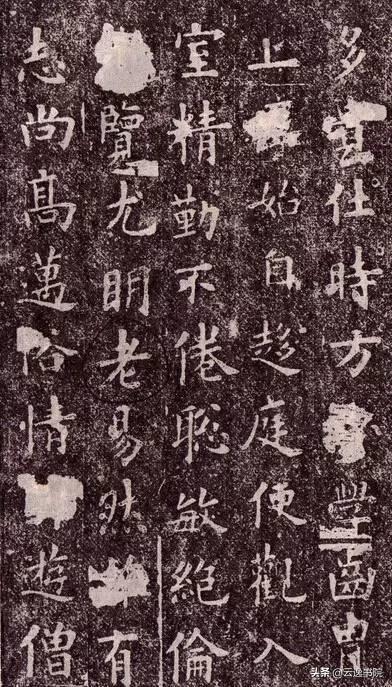 多仕時方學齒胄
上始自趍庭便觀入
室精勤不倦聡敏絕倫
覽尤明老易然有
志尚髙邁俗情遊僧
头条 @云逸书院